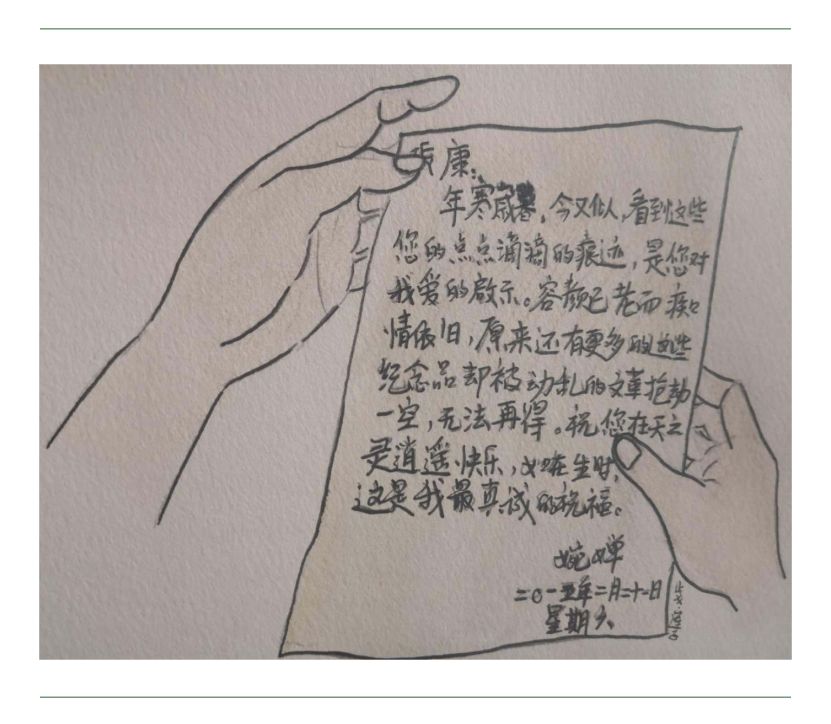 康:
年寒歲暑,今又似人,看到这些
您的点点滴滴的痕迹,是您对
我爱的啟示。容颜已老而痴
情依旧,原来还有更多的这些
纪念品却被动乱的文革抢劫
一空,无法再得。祝您在天之
灵逍遥快乐,如在生时,
这是我最真诚的祝福。
婉婵
二0一五年二月二十一日
星期六